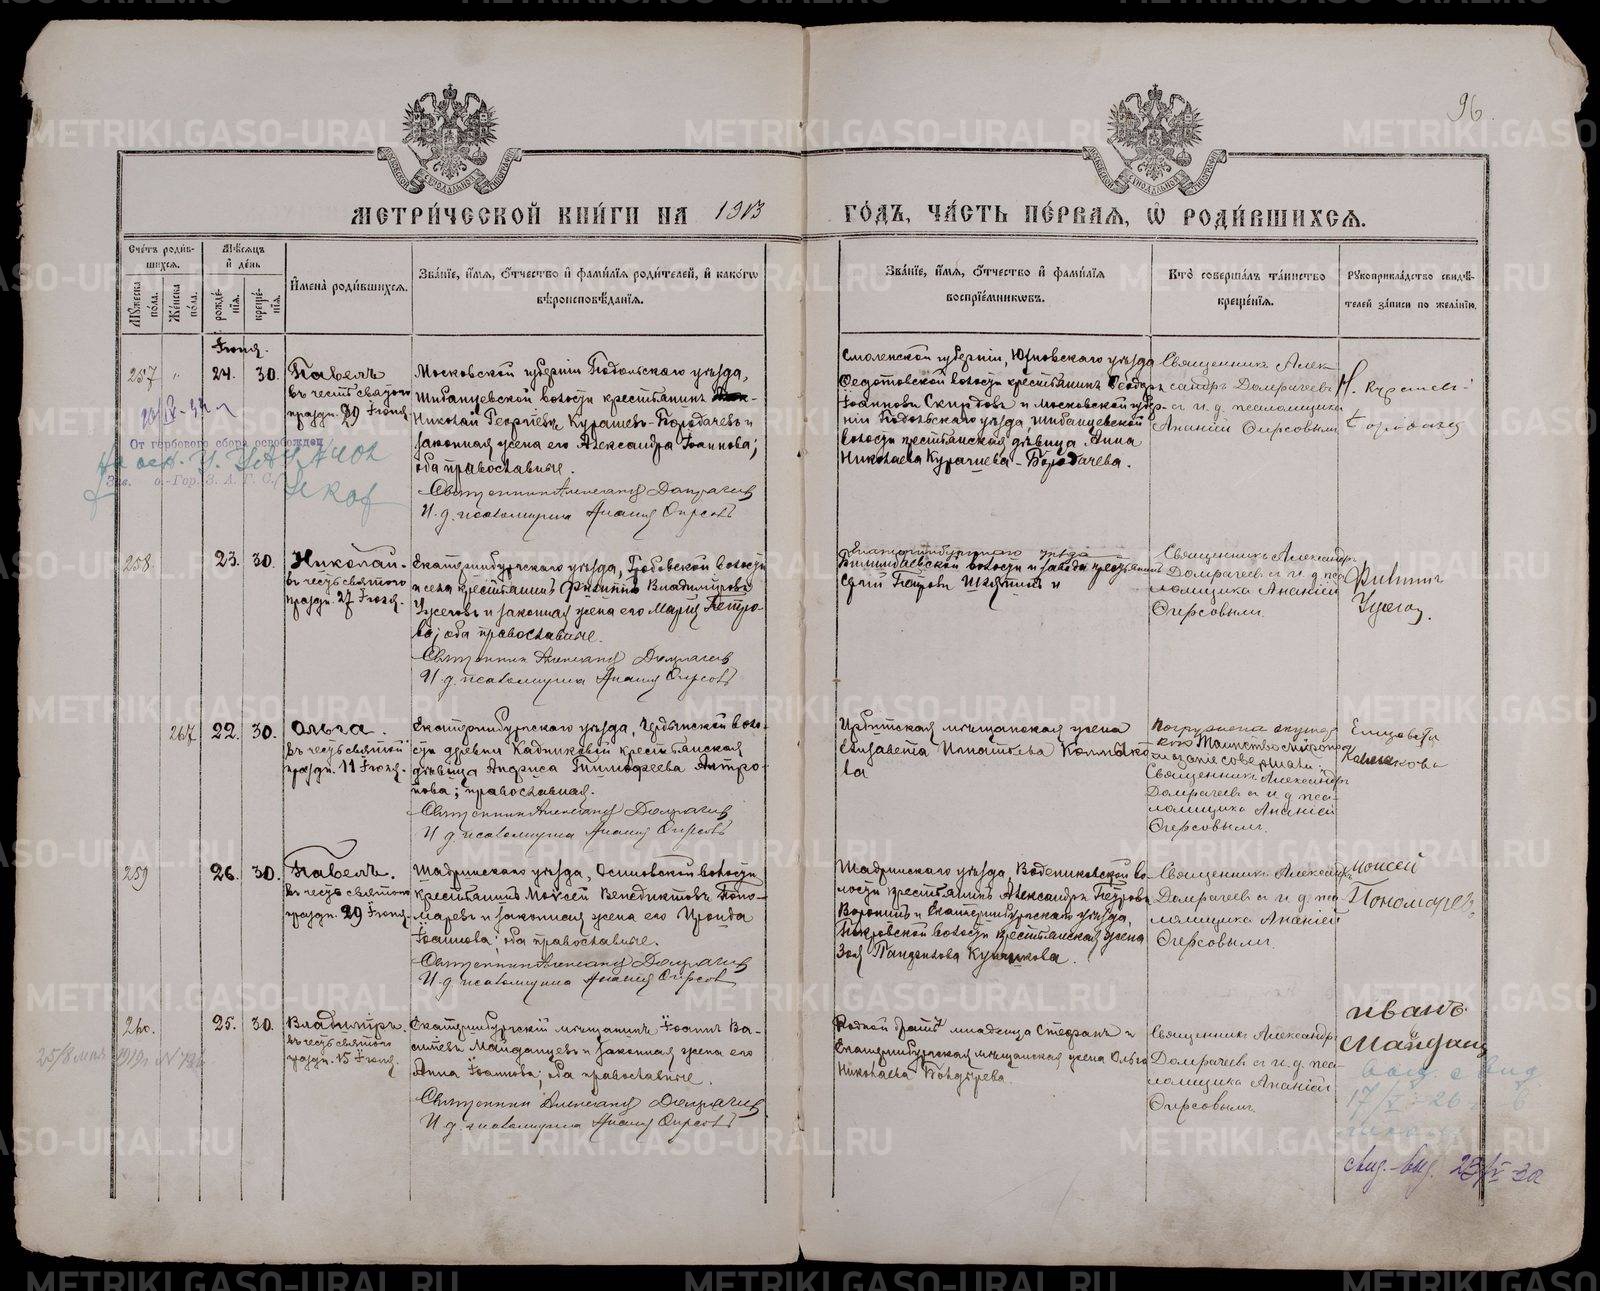 96.
МЕТРИ́ЧЕСКОЙ КНИ́ГИ НА 1913 ГО́ДЪ, ЧА́СТЬ ПЕ́РВАЯ, Ѡ҆ РОДИ́ВШИХСЯ.
Сче́тъ роди́в-
шихся.
Мѣ́сяцъ
и҆ де́нь
Мꙋ́жеска по́ла.
Же́нска по́ла.
рожде́-
нїя.
креще́-
нїя.
И҆мена̀ роди́вшихся.
Зва́нїе, и҆́мя, ѻ҆́тчество и҆ фами́лїя роди́телей, и҆ како́гѡ
вѣроисповѣ́данїя.
Зва́нїе, и҆́мя, ѻ҆́тчество и҆ фами́лїя
воспрїе́мникѡвъ.
Кто̀ соверша́лъ та́инство
креще́нїя.
Рꙋкоприкла́дство свидѣ́-
телей за́писи по жела́нїю.
Іюня.
257 " 24. 30. Павелъ
въ честь святого
праздн. 29 Іюня.
От гербового сбора освобожден
Гор. З. А. Г. С.
Московской губерніи Подольскаго уѣзда,
Шебанцевской волости крестьянинъ
Николай Георгіевъ Курашевъ-Бородачевъ и
законная жена его Александра Іоаннова;
оба православные.
Священникъ Александръ Домрачевъ
И. д. псаломщика Ананій Фирсовъ
Смоленской губерніи, Юхновскаго уѣзда
Федотовской волости крестьянинъ Ѳеодоръ
Іоанновъ Скирдовъ и Московской губер-
ніи Подольскаго уѣзда Шебанцевской
волости крестьянская дѣвица Анна
Николаева Курашева-Бородачева.
Священникъ Алек-
сандръ Домрачевъ
съ и. д. псаломщика
Ананіей Фирсовымъ
258 23. 30. Николай.
въ честь святого
праздн. 27 Іюня.
Екатеринбургскаго уѣзда, волости
и села крестьянинъ Филиппъ Владиміровъ
и законная жена его Марія Петро-
ва; оба православные.
Священникъ Александръ Домрачевъ
И. д. псаломщика Ананій Фирсовъ
Екатеринбургского уезда
Билимбаевской волости и завода крестьянинъ
Сергій Петровъ и
Священникъ Александръ
Домрачевъ съ и. д. пса-
ломщика Ананіей
Фирсовымъ.
Филиппъ
267 22. 30. Ольга.
въ честь святой
праздн. 11 Іюля.
Екатеринбургскаго уѣзда, воло-
сти деревни Кадниковой крестьянская
дѣвица Анфиса Тимофеева Антро-
пова; православная.
Священникъ Александръ Домрачевъ
И. д. псаломщика Ананій Фирсовъ
Ирбитская мѣщанская жена
Елизавета Игнатьева
Погружена акушер-
кою Таинство Миропо-
мазание совершали:
Священникъ Александръ
Домрачевъ съ и. д. пса-
ломщика Ананіей
Фирсовымъ.
Елизавета
259 26. 30. Павелъ.
въ честь святого
праздн. 29 Іюня.
Шадринскаго уѣзда, Осиновской волости
крестьянинъ Моѵсей Венедиктовъ Поно-
маревъ и законная жена его Ираида
Іоаннова; оба православные.
Священникъ Александръ Домрачевъ
И. д. псаломщика Ананій Фирсовъ
Шадринскаго уѣзда, Водениковской во-
лости крестьянинъ Александръ Петровъ
Воронинъ и Екатеринбургскаго уѣзда,
Покровской волости крестьянская жена
Зоя
Священникъ Александръ
Домрачевъ съ и. д. пса-
ломщика Ананіей
Фирсовымъ.
Моисей
Пономаревъ
260. 25. 30. Владиміръ.
въ честь святого
праздн. 15 Іюля.
Екатеринбургскій мѣщанинъ Іоаннъ Ва-
сильевъ Майданцевъ и законная жена его
Анна Іоаннова; оба православные.
Священникъ Александръ Домрачевъ
И. д. псаломщика Ананій Фирсовъ
Родной братъ младенца Стефанъ и
Екатеринбургская мѣщанская жена Ольга
Николаева Бондырева.
Священникъ Александръ
Домрачевъ съ и. д. пса-
ломщика Ананіей
Фирсовымъ.
Иванъ
Майданц